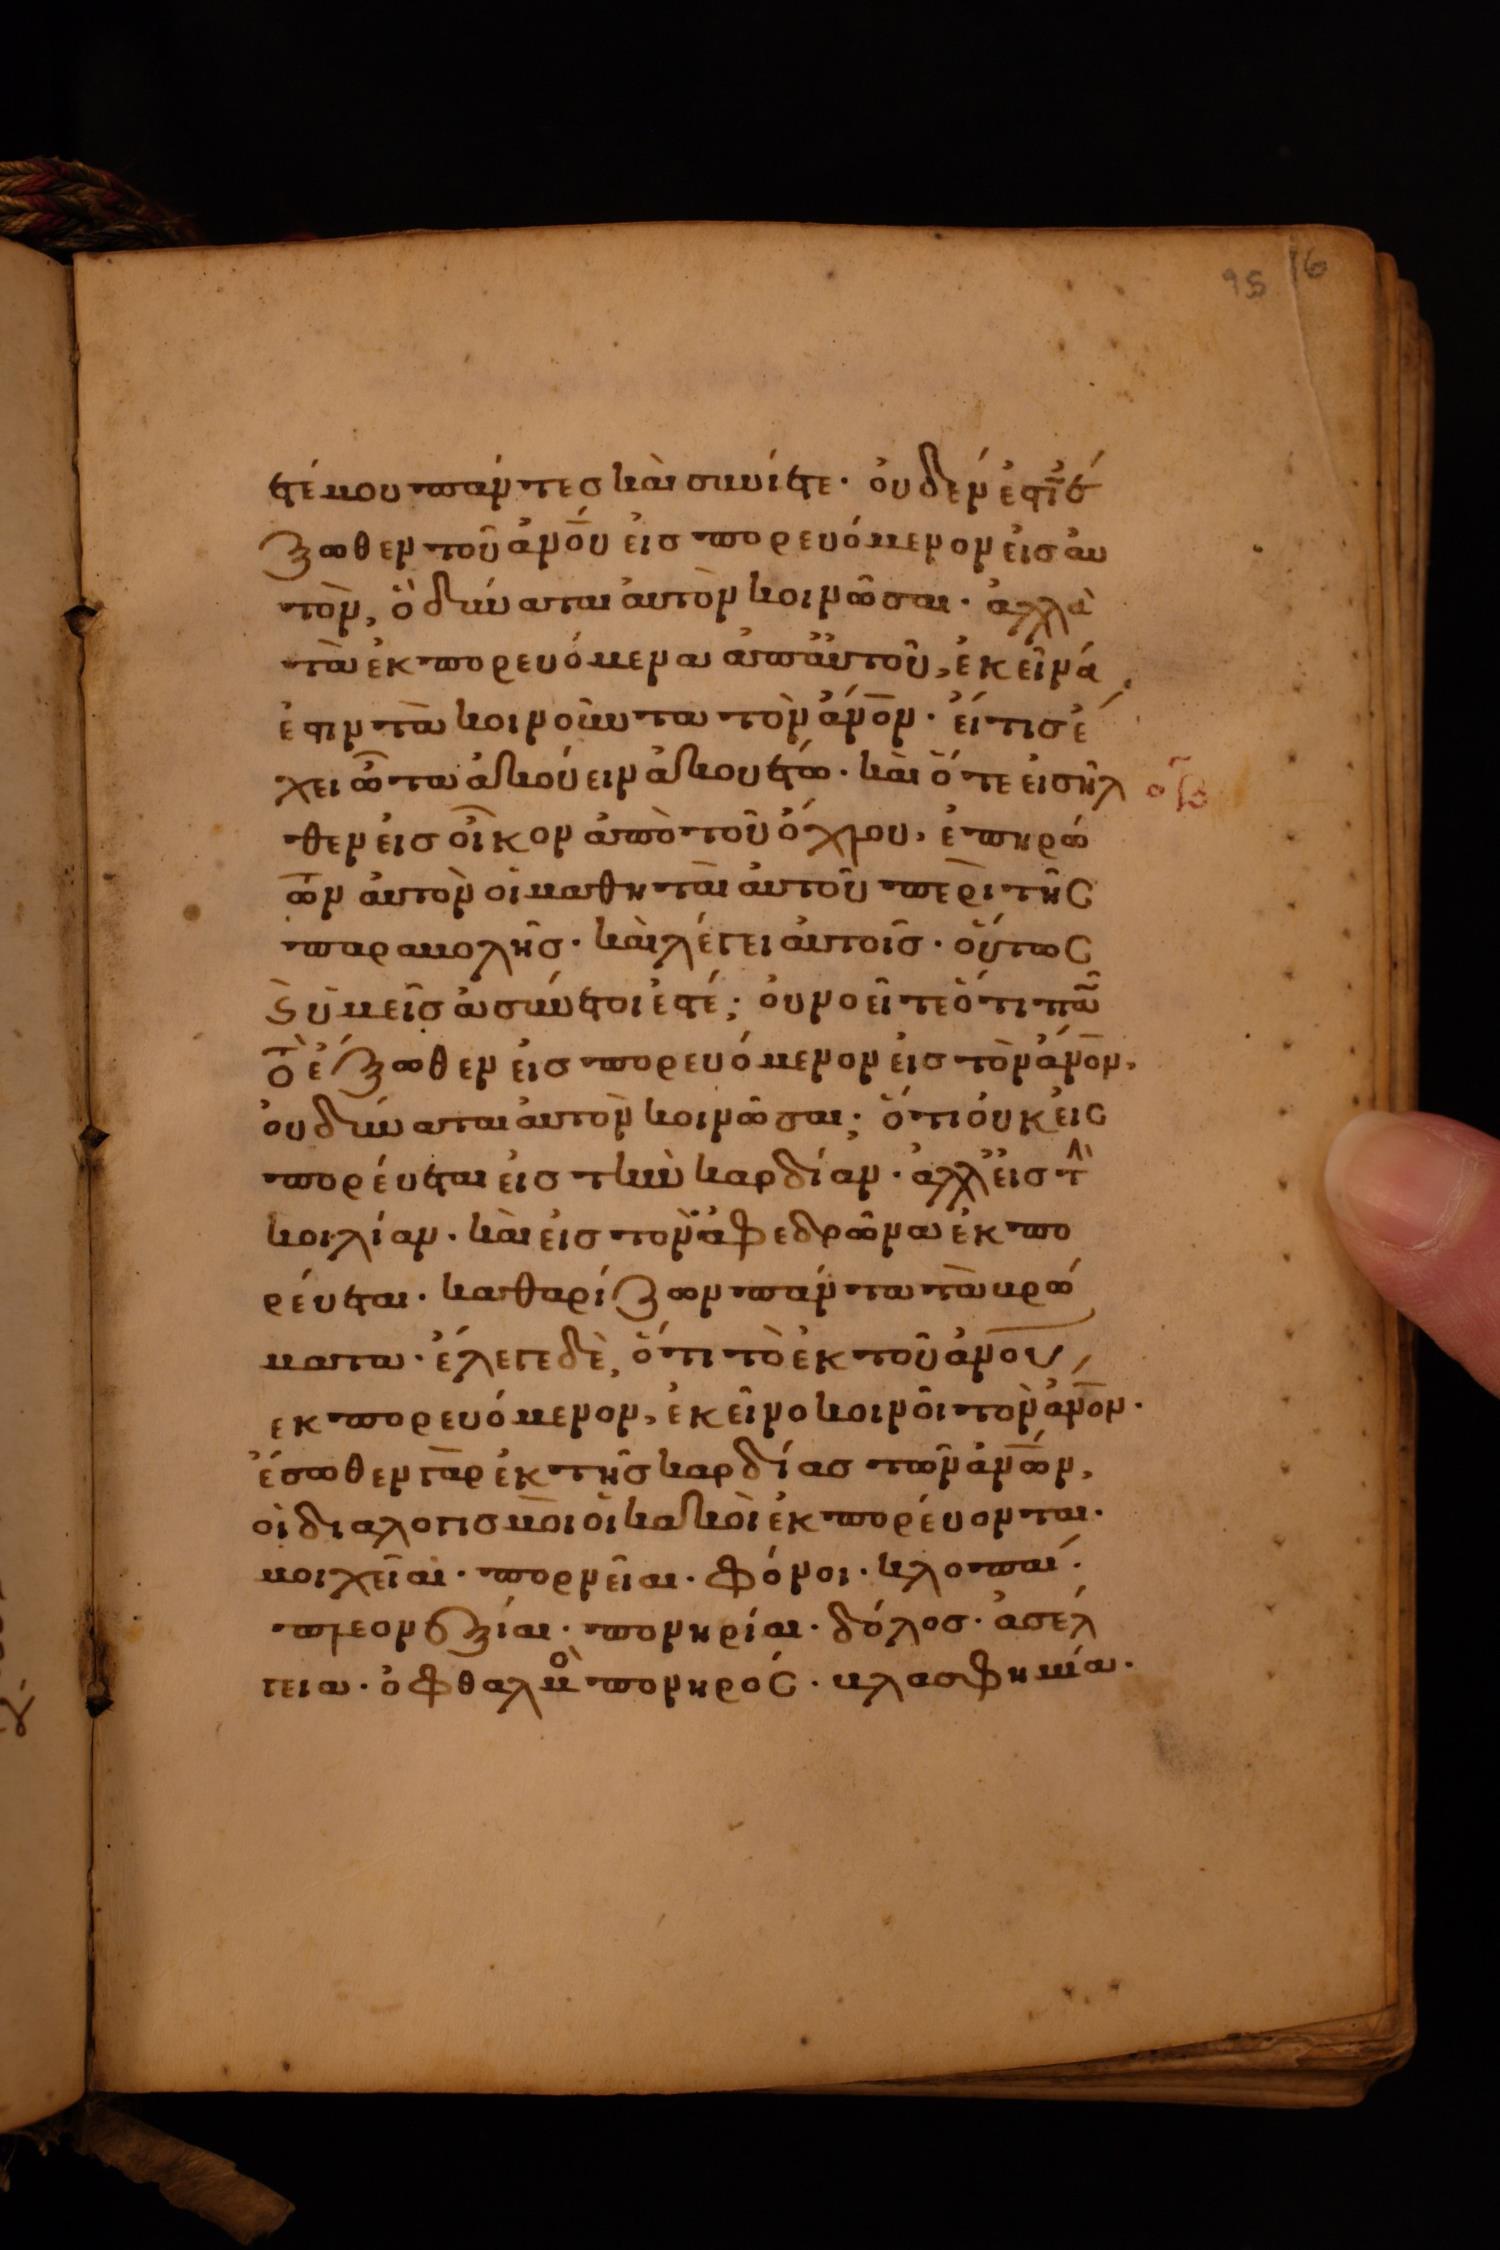 95 16
τέ μου πάντες καὶ συνίετε· οὐδέν ἐστιν ἔ
ξωθεν τοῦ ἀνο̅υ εἰσπορευόμενον εἰς αὐ
τὸν, ὃ δύναται αὐτὸν κοινῶσαι· ἀλλὰ
τὰ ἐκπορευόμενα ἀπ' αὐτοῦ, ἐκεῖνά
ἐστιν τὰ κοινοῦντα τὸν ἀν̅ον· εἴ τις ἔ
χει ὦτα ἀκούειν ἀκουέτω· καὶ ὅτε εἰσῆλ
θεν εἰς οἶκον ἀπὸ τοῦ ὄχλου, ἐπηρώ
ων αὐτὸν οἱ μαθηταὶ αὐτοῦ περὶ τῆς
παραβολῆς· καὶ λέγει αὐτοῖς· οὕτως
ϛ ὑμεῖς ἀσύνετοί ἐστέ; οὐ νοεῖτε ὅτι πᾶν
τὸ ἔξωθεν εἰσπορευόμενον εἰς τὸν ἄν̅ον,
οὐ δύναται αὐτὸν κοινῶσαι; ὅτι οὐκ εἰς
πορεύεται εἰς τὴν καρδίαν· ἀλλ' εἰς τὴν
κοιλίαν· καὶ εἰς τὸν ἀφεδρῶνα ἐκπο
ρεύεται· καθαρίζων πάντα τὰ βρώ
ματα· ἔλεγε δὲ, ὅτι τὸ ἐκ τοῦ ἀν̅ου
ἐκπορευόμενον, ἐκεῖνο κοινοῖ τὸν ἄν̅ον·
ἔσωθεν γὰρ ἐκ τῆς καρδίας τῶν ἀν̅ων,
οἱ διαλογισμοὶ οἱ κακοὶ ἐκπορεύονται·
μοιχεῖαι· πορνεῖαι· φόνοι· κλοπαί·
πλεονεξίαι· πονηρίαι· δόλος· ἀσέλ
γεια· ὀφθαλμὸ πονηρός· βλασφημία·